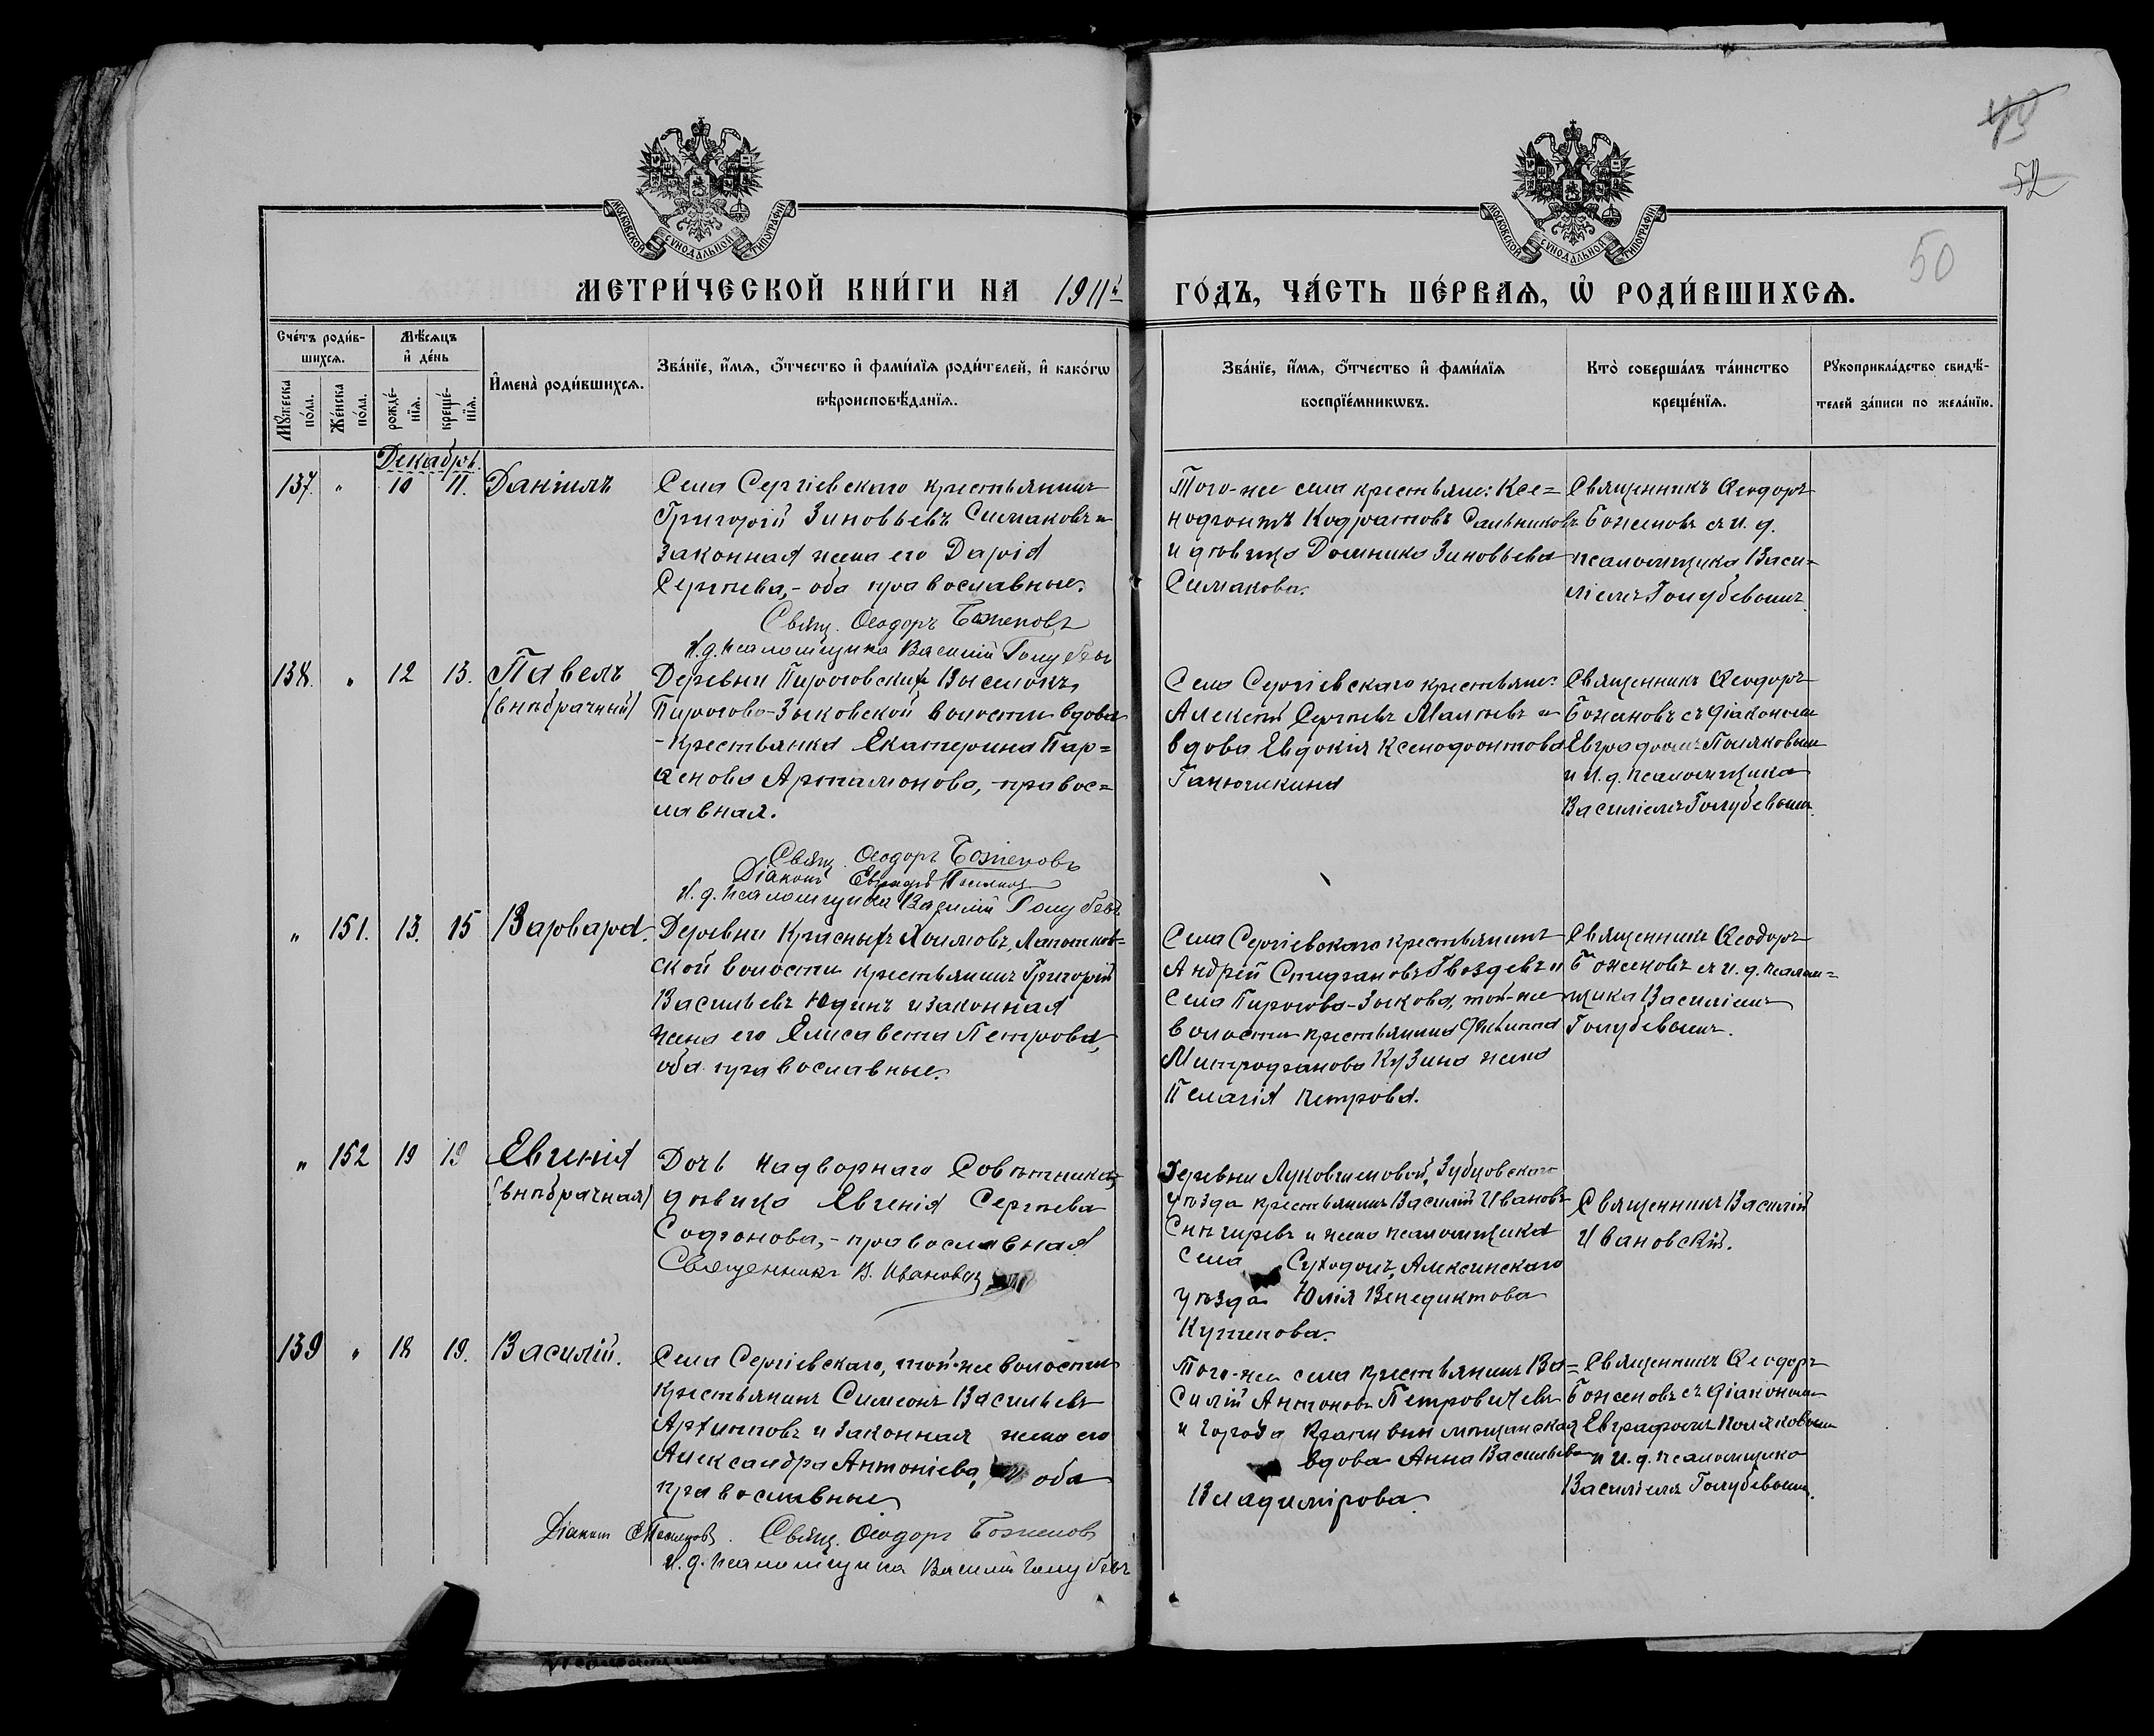 43
52
50
МОСКОВСКОЙ СУНОДАЛЬНОЙ ТИПОГРАФІИ
МОСКОВСКОЙ СУНОДАЛЬНОЙ ТИПОГРАФІИ
МЕТРИ́ЧЕСКОЙ КНИ́ГИ НА 1911й ГО́ДЪ, ЧА́СТЬ ПЕ́РВАѦ, Ѡ РОДИ́ВШИХСѦ.
Сче́тъ роди́в-
шихсѧ.
Мꙋ́жеска по́ла.
Же́нска по́ла.
Мѣ́сѧцъ
и҆ де́нь
рожде́-
нїѧ.
креще́-
нїѧ.
И҆мена̀ роди́вшихсѧ.
Зва́нїе, и҆́мѧ, ѻ҆́тчество и҆ фами́лїѧ роди́телей, и҆ како́гѡ
вѣроисповѣ́данїѧ.
Зва́нїе, и҆́мѧ, ѻ҆́тчество и҆ фами́лїѧ
воспрїе́мникѡвъ.
Кто̀ соверша́лъ та́инство
креще́нїѧ.
Рꙋкоприкла́дство свидѣ́-
телей за́писи по жела́нїю.
Декабрь.
137. " 10 11. Даніилъ
Села Сергіевскаго крестьянинъ
Григорій Зиновьевъ Симаковъ и
законная жена его Дарія
Сергѣева,- оба православные.
Свящ. Ѳеодоръ Боженовъ
И.д. псаломщика Василій Голубевъ
Того-же села крестьяне: Ксе=
нофонтъ Кодратовъ Сальниковъ
и дѣвица Домника Зиновьева
Симакова.
Священникъ Ѳеодоръ
Боженовъ съ и. д.
псаломщика Васи=
ліемъ Голубевымъ.
138. " 12 13. Павелъ
(внѣбрачный)
Деревни Пироговскихъ Выселокъ,
Пирогово-Зыковской волости вдова
-крестьянка Екатерина Пар=
ѳенова Артамонова, -правос=
лавная.
Свящ. Ѳеодоръ Боженовъ
Діаконъ Евграфъ Поляковъ
И.д. псаломщика Василій Голубевъ
Села Сергіевскаго крестьяне:
Алексѣй Сергѣевъ Малѣевъ и
вдова Евдокія Ксенофонтова
Ганючкина
Священникъ Ѳеодоръ
Боженовъ съ діакономъ
Евграфомъ Поляковымъ
и и. д. псаломщика
Василіемъ Голубевымъ.
" 151. 13. 15 Варвара.
Деревни Красныхъ Холмовъ, Лапотков=
ской волости крестьянинъ Григорій
Васильевъ Юдинъ и законная
жена его Елисавета Петрова,
оба православные.
Села Сергіевскаго крестьянинъ
Андрей Стефановъ Гвоздевъ и
села Пирогова-Зыкова, той-же
волости крестьянина Филиппа
Митрофанова Кузина жена
Пелагія Петрова.
Священникъ Ѳеодоръ
Боженовъ съ и. д. псалом=
щика Василіемъ
Голубевымъ.
" 152 19 19 Евгенія
(внѣбрачная)
Дочь Надворнаго Совѣтника,
дѣвица Евгенія Сергѣева
Софонова,-православная
Священникъ В. Ивановск
Деревни Луковниковой, Зубцовскаго
уѣзда крестьянинъ Василій Ивановъ
Снѣгиревъ и жена псаломщика
села Суходолъ, Алексинскаго
уѣзда Юлія Венедиктова
Кутепова.
Священникъ Василій
Ивановскій.
139 " 18 19. Василій.
Села Сергіевскаго, той-же волости
крестьянинъ Симеонъ Васильевъ
Архиповъ и законная жена его
Александра Антоніева, оба
православные
Діаконъ Е Поляковъ. Свящ. Ѳеодоръ Боженовъ
И.д. псаломщика Василій Голубевъ
Того-же села крестьянинъ Ва=
силій Антоновъ Петровичевъ
и города Крапивны мѣщанская
вдова Анна Васильева
Владимірова.
Священникъ Ѳеодоръ
Боженовъ съ діакономъ
Евграфомъ Поляковымъ
и и. д. псаломщика
Василіемъ Голубевымъ.